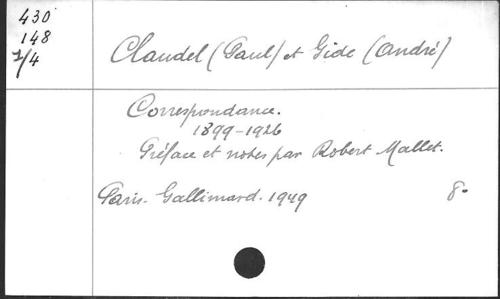 430
148
7/4
Claudel (Paul) et Gide (André)
Correspondance.
1899-1926
Préface et notes par Robert Mallet.
Paris. Gallimard. 1949 8°